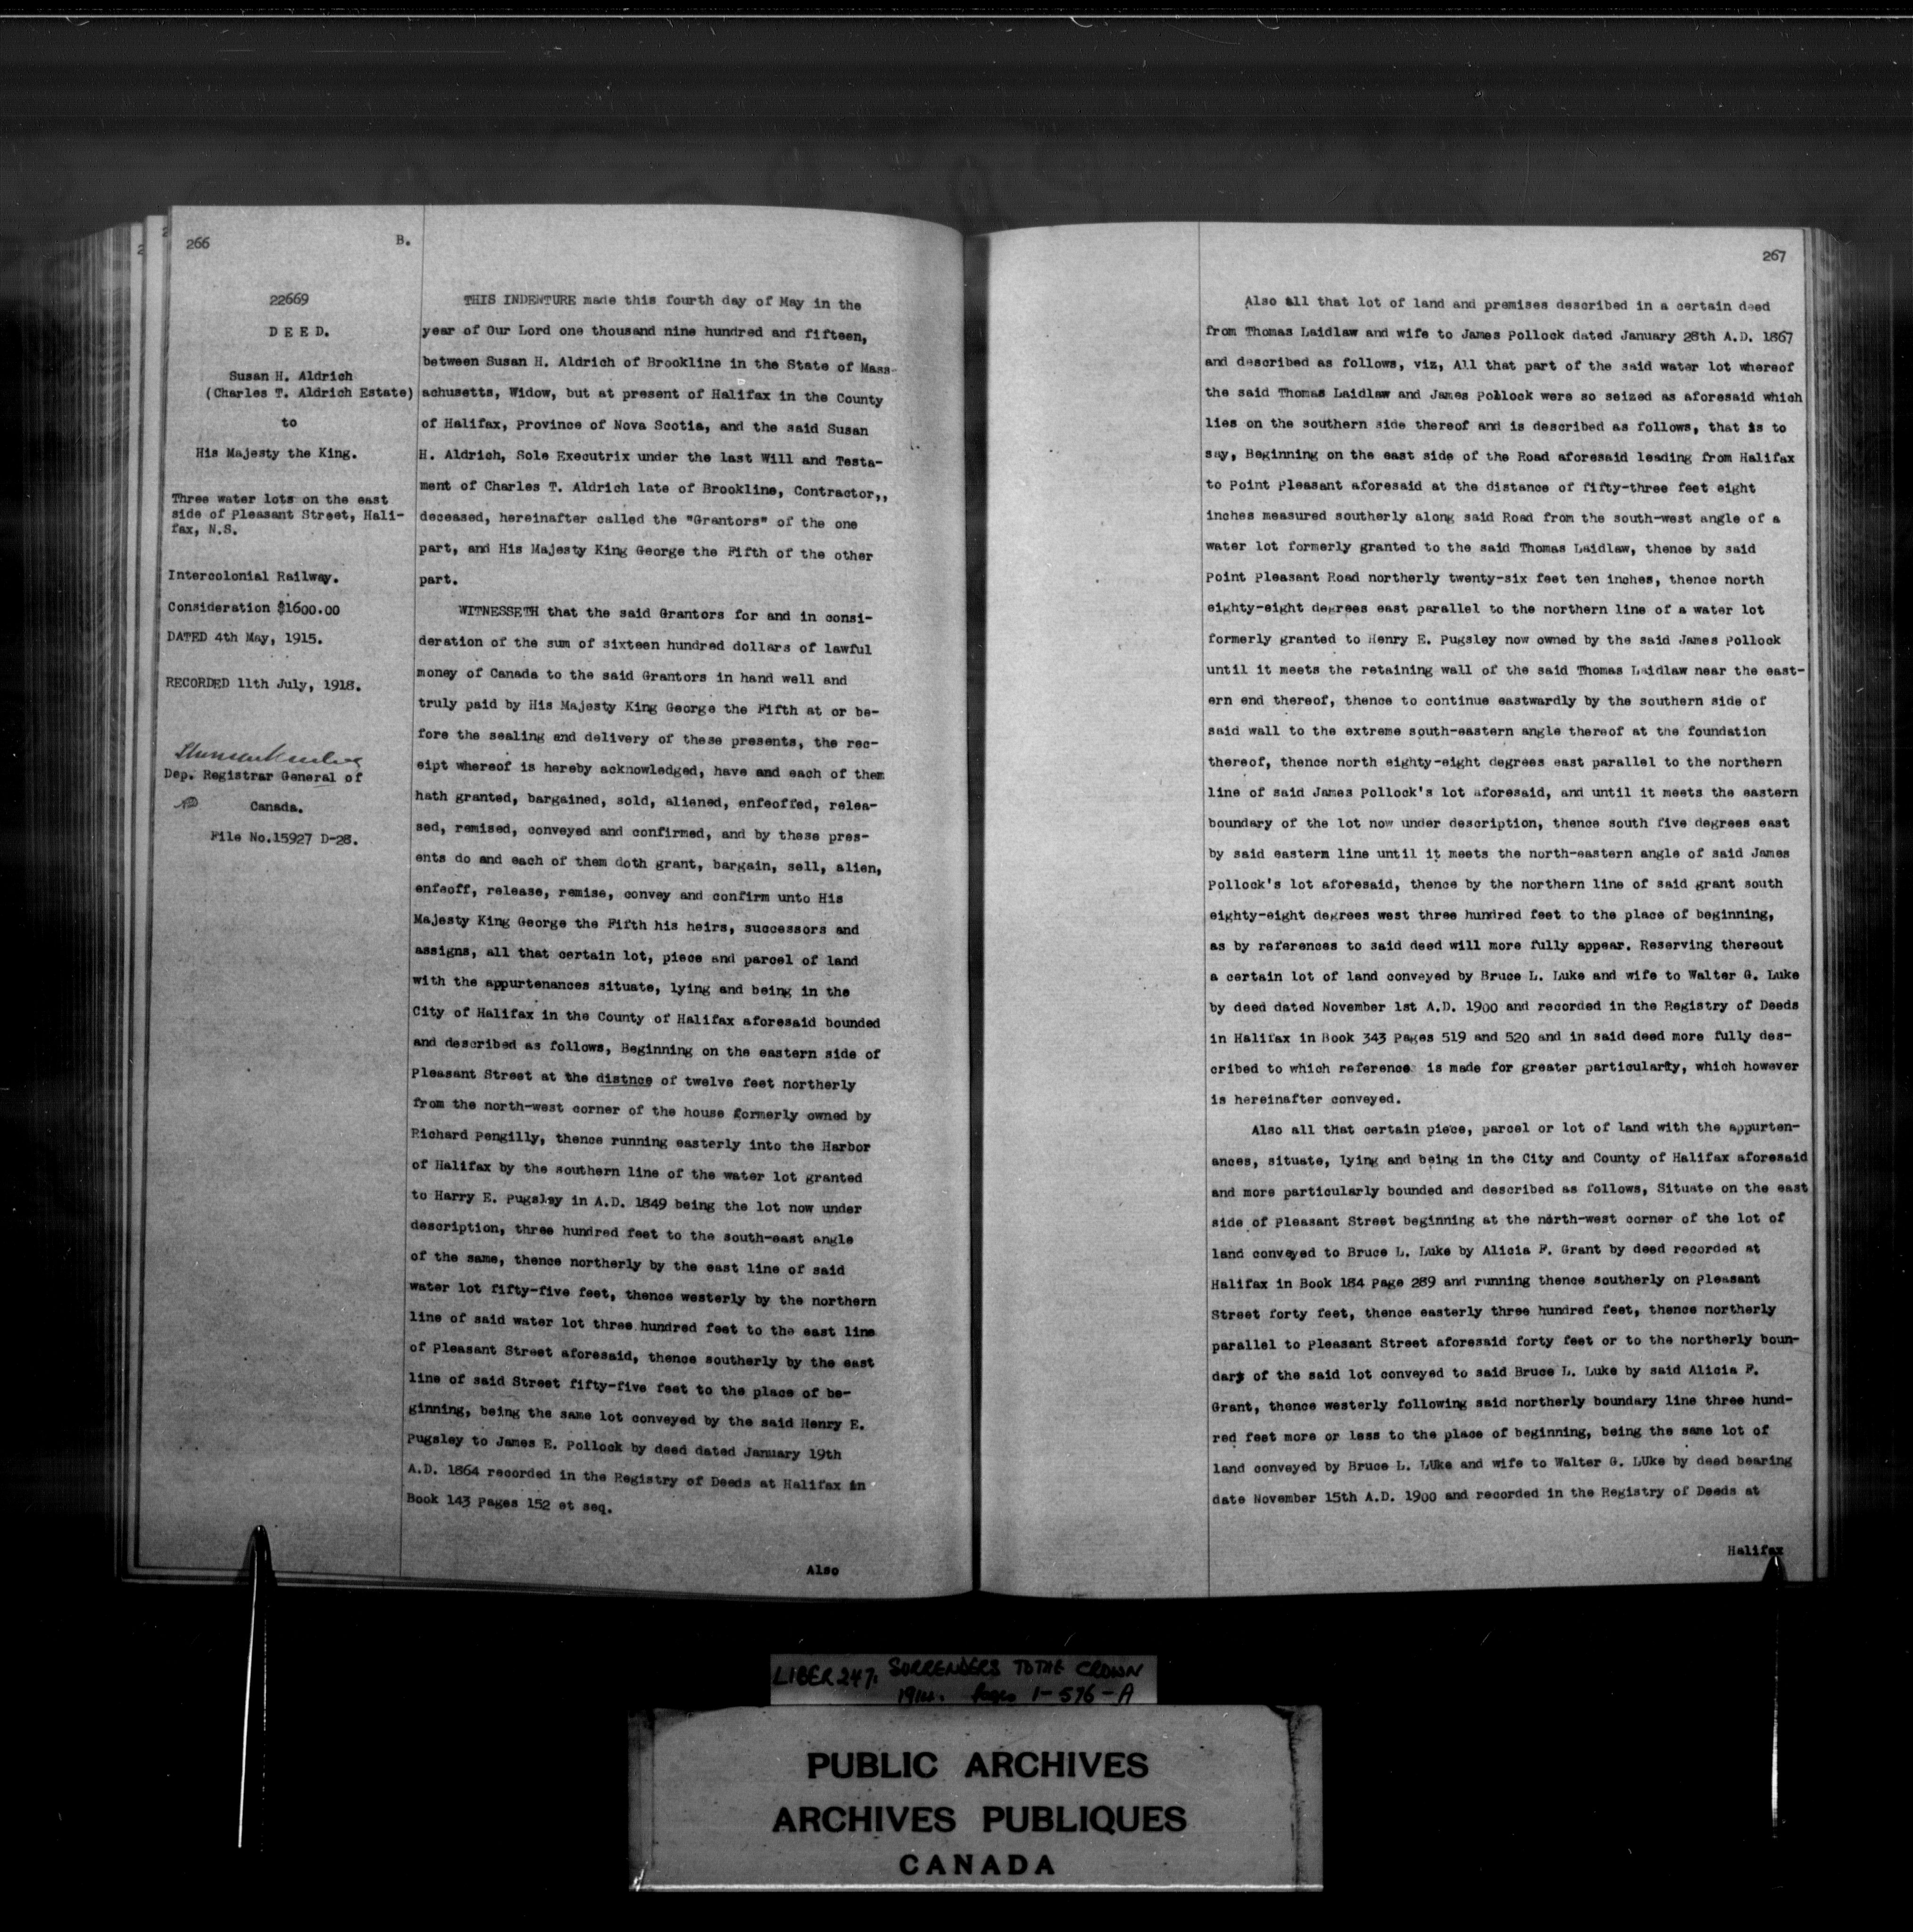 266
B.
22669
D E E D.
Susan H. Aldrich
(Charles T. Aldrich Estate)
to
His Majesty the King.
Three water lots on the east
side of Pleasant Street, Hali-
fax, N.S.
Intercolonial Railway.
Consideration $1600.00
DATED 4th May, 1915.
RECORDED 11th July, 1918.
Dep. Registrar General of
Canada.
File No.15927 D-28.
THIS INDENTURE made this fourth day of May in the
year of Our Lord one thousand nine hundred and fifteen,
between Susan H. Aldrich of Brookline in the State of Mass-
achusetts, Widow, but at present of Halifax in the County
of Halifax, Province of Nova Scotia, and the said Susan
H. Aldrich, Sole Executrix under the last Will and Testa-
ment of Charles T. Aldrich late of Brookline, Contractor,,
deceased, hereinafter called the "Grantors" of the one
part, and His Majesty King George the Fifth of the other
part.
WITNESSETH that the said Grantors for and in consi-
deration of the sum of sixteen hundred dollars of lawful
money of Canada to the said Grantors in hand well and
truly paid by His Majesty King George the Fifth at or be-
fore the sealing and delivery of these presents, the rec-
eipt whereof is hereby acknowledged, have and each of them
hath granted, bargained, sold, aliened, enfeoffed, relea-
sed, remised, conveyed and confirmed, and by these pres-
ents do and each of them doth grant, bargain, sell, alien,
enfeoff, release, remise, convey and confirm unto His
Majesty King George the Fifth his heirs, successors and
assigns, all that certain lot, piece and parcel of land
with the appurtenances situate, lying and being in the
City of Halifax in the County of Halifax aforesaid bounded
and described as follows, Beginning on the eastern side of
Pleasant Street at the distnce of twelve feet northerly
from the north-west corner of the house formerly owned by
Richard Pengilly, thence running easterly into the Harbor
of Halifax by the southern line of the water lot granted
to Harry E. Pugsley in A.D. 1849 being the lot now under
description, three hundred feet to the south-east angle
of the same, thence northerly by the east line of said
water lot fifty-five feet, thence westerly by the northern
line of said water lot three hundred feet to the east line
of Pleasant Street aforesaid, thence southerly by the east
line of said Street fifty-five feet to the place of be-
ginning, being the same lot conveyed by the said Henry E.
Pugsley to James E. Pollock by deed dated January 19th
A.D. 1864 recorded in the Registry of Deeds at Halifax in
Book 143 Pages 152 et seq.
Also
267
Also all that lot of land and premises described in a certain deed
from Thomas Laidlaw and wife to James Pollock dated January 28th A.D. 1867
and described as follows, viz, All that part of the said water lot whereof
the said Thomas Laidlaw and James Pollock were so seized as aforesaid which
lies on the southern side thereof and is described as follows, that is to
say, Beginning on the east side of the Road aforesaid leading from Halifax
to Point Pleasant aforesaid at the distance of fifty-three feet eight
inches measured southerly along said Road from the south-west angle of a
water lot formerly granted to the said Thomas Laidlaw, thence by said
Point Pleasant Road northerly twenty-six feet ten inches, thence north
eighty-eight degrees east parallel to the northern line of a water lot
formerly granted to Henry E. Pugsley now owned by the said James Pollock
until it meets the retaining wall of the said Thomas Laidlaw near the east-
ern end thereof, thence to continue eastwardly by the southern side of
said wall to the extreme south-eastern angle thereof at the foundation
thereof, thence north eighty-eight degrees east parallel to the northern
line of said James Pollock's lot aforesaid, and until it meets the eastern
boundary of the lot now under description, thence south five degrees east
by said eastern line until it meets the north-eastern angle of said James
Pollock's lot aforesaid, thence by the northern line of said grant south
eighty-eight degrees west three hundred feet to the place of beginning,
as by references to said deed will more fully appear. Reserving thereout
a certain lot of land conveyed by Bruce L. Luke and wife to Walter G. Luke
by deed dated November 1st A.D. 1900 and recorded in the Registry of Deeds
in Halifax in Book 343 Pages 519 and 520 and in said deed more fully des-
cribed to which reference is made for greater particularity, which however
is hereinafter conveyed.
Also all that certain piece, parcel or lot of land with the appurten-
ances, situate, lying and being in the City and County of Halifax aforesaid
and more particularly bounded and described as follows, Situate on the east
side of Pleasant Street beginning at the north-west corner of the lot of
land conveyed to Bruce L. Luke by Alicia F. Grant by deed recorded at
Halifax in Book 184 Page 289 and running thence southerly on Pleasant
Street forty feet, thence easterly three hundred feet, thence northerly
parallel to Pleasant Street aforesaid forty feet or to the northerly boun-
dary of the said lot conveyed to said Bruce L. Luke by said Alicia F.
Grant, thence westerly following said northerly boundary line three hund-
red feet more or less to the place of beginning, being the same lot of
land conveyed by Bruce L. LUke and wife to Walter G. LUke by deed bearing
date November 15th A.D. 1900 and recorded in the Registry of Deeds at
Halifax
LIBER 247. SURRENDERS TO THE CROWN
1914. Pages 1-576-A
PUBLIC ARCHIVES
ARCHIVES PUBLIQUES
CANADA